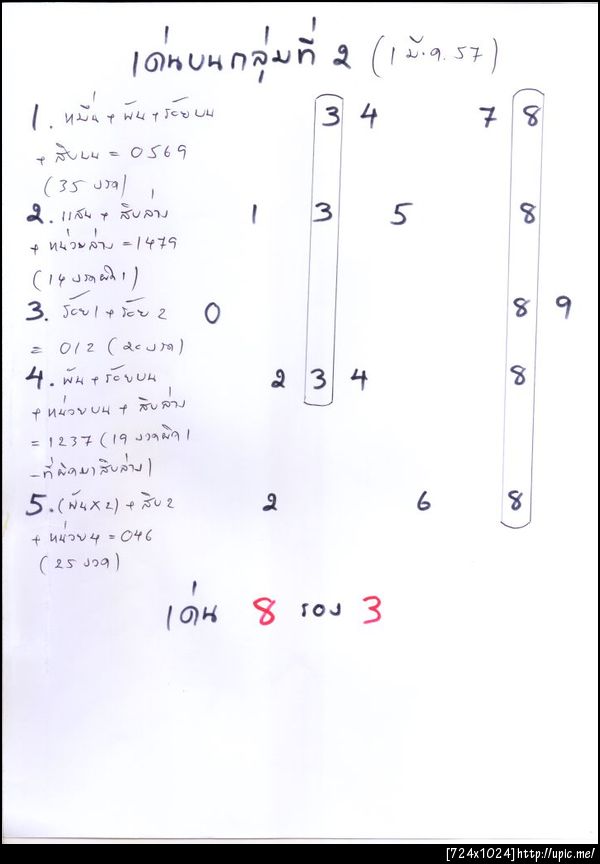 เด่นบนกลุ่มที่ 2 (1 มี.ค. 57)
1. หมื่น + พัน + ร้อยบน 3 4 7 8
+ สิบบน = 0569
(35 งวด)
2. แสน + สิบล่าง 1 3 5 8
+ หน่วยล่าง = 1479
(14 งวดผิด 1)
3. ร้อย 1 + ร้อย 2 0 8 9
= 012 (20 งวด)
4. พัน + ร้อยบน 2 3 4 8
+ หน่วยบน + สิบล่าง
= 1237 (19 งวดผิด 1
-ที่ผิดมาสิบล่าง)
5. (พัน x 2) + สิบ 2 2 6 8
+ หน่วย 4 = 046
(25 งวด)
เด่น 8 รอง 3
[724x1024]http://upic.me/